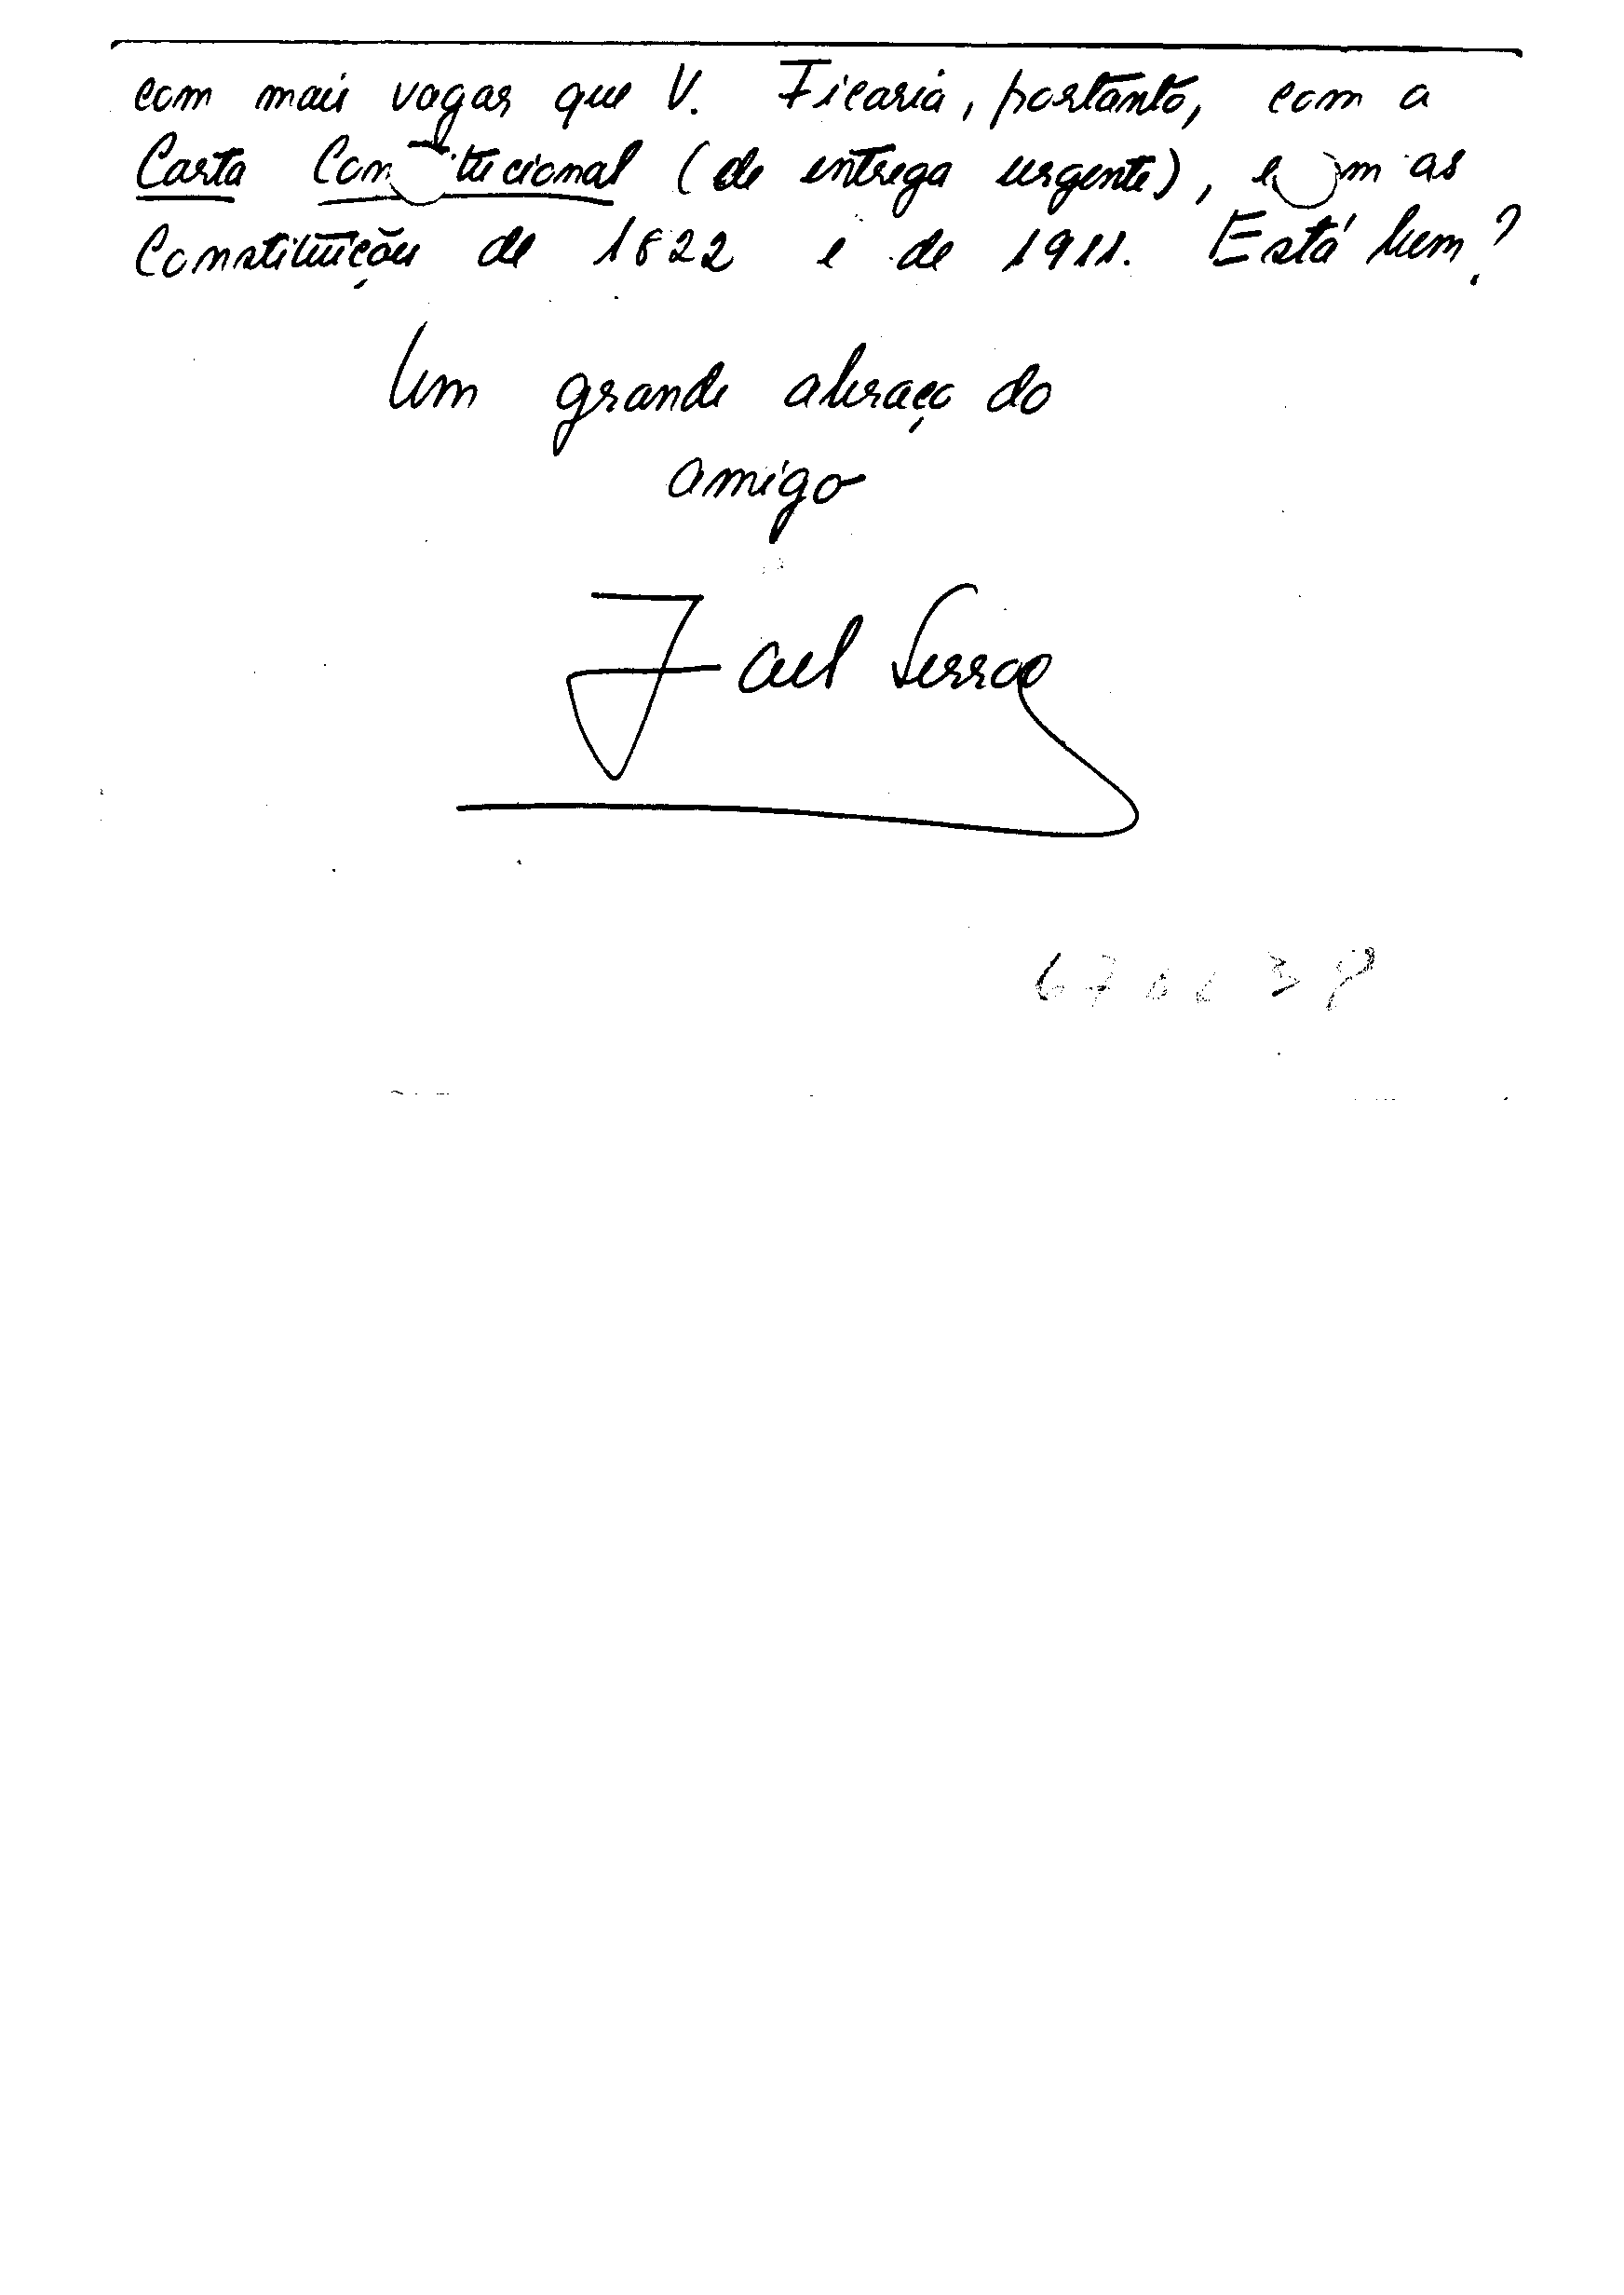 com mais vagar que V. Ficaria, portanto, com a
Carta Constitucional (de entrega urgente), e com as
Constituições de 1822 e de 1911. Está bem?
Um grande abraço do
amigo
Joel Serrão